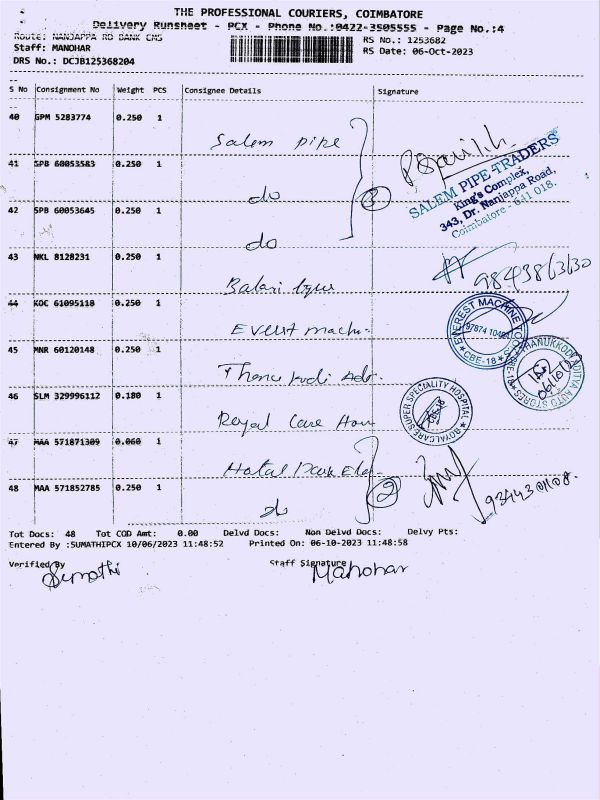 THE PROFESSIONAL COURIERS, COIMBATORE
Delivery Runsheet - PCX - Phone No.:0422-3505555 - Page No.:4
Route: NANJAPPA RD BANK CMS
Staff: MANOHAR
DRS No.: DCJB125368204
RS No.: 1253682
RS Date: 06-Oct-2023
S No Consignment No Weight PCS Consignee Details Signature
40 GPM 5283774 0.250 1 Salem pipe
41 SPB 60053583 0.250 1 do
42 SPB 60053645 0.250 1 do
3
SALEM PIPE TRADERS
King's Complex,
343, Dr. Nanjappa Road,
Coimbatore - 641 018.
43 NKL 8128231 0.250 1 Balaji
44 KOC 61095118 0.250 1 Everst machi.
EVEREST MACHINE TOOLS
CBE-18
45 MNR 60120148 0.250 1
THANUKKODI ADITYA AUTO STORES
46 SLM 329996112 0.180 1 Royal Care Hos
ROYALCARE SUPER SPECIALITY HOSPITAL
CBE-18
47 MAA 571871309 0.060 1 Hotal Park Ele.
48 MAA 571852785 0.250 1 do
2
Tot Docs: 48 Tot COD Amt: 0.00 Delvd Docs: Non Delvd Docs: Delvy Pts:
Entered By :SUMATHIPCX 10/06/2023 11:48:52 Printed On: 06-10-2023 11:48:58
Verified By Staff Signature
Sumathi Manohar